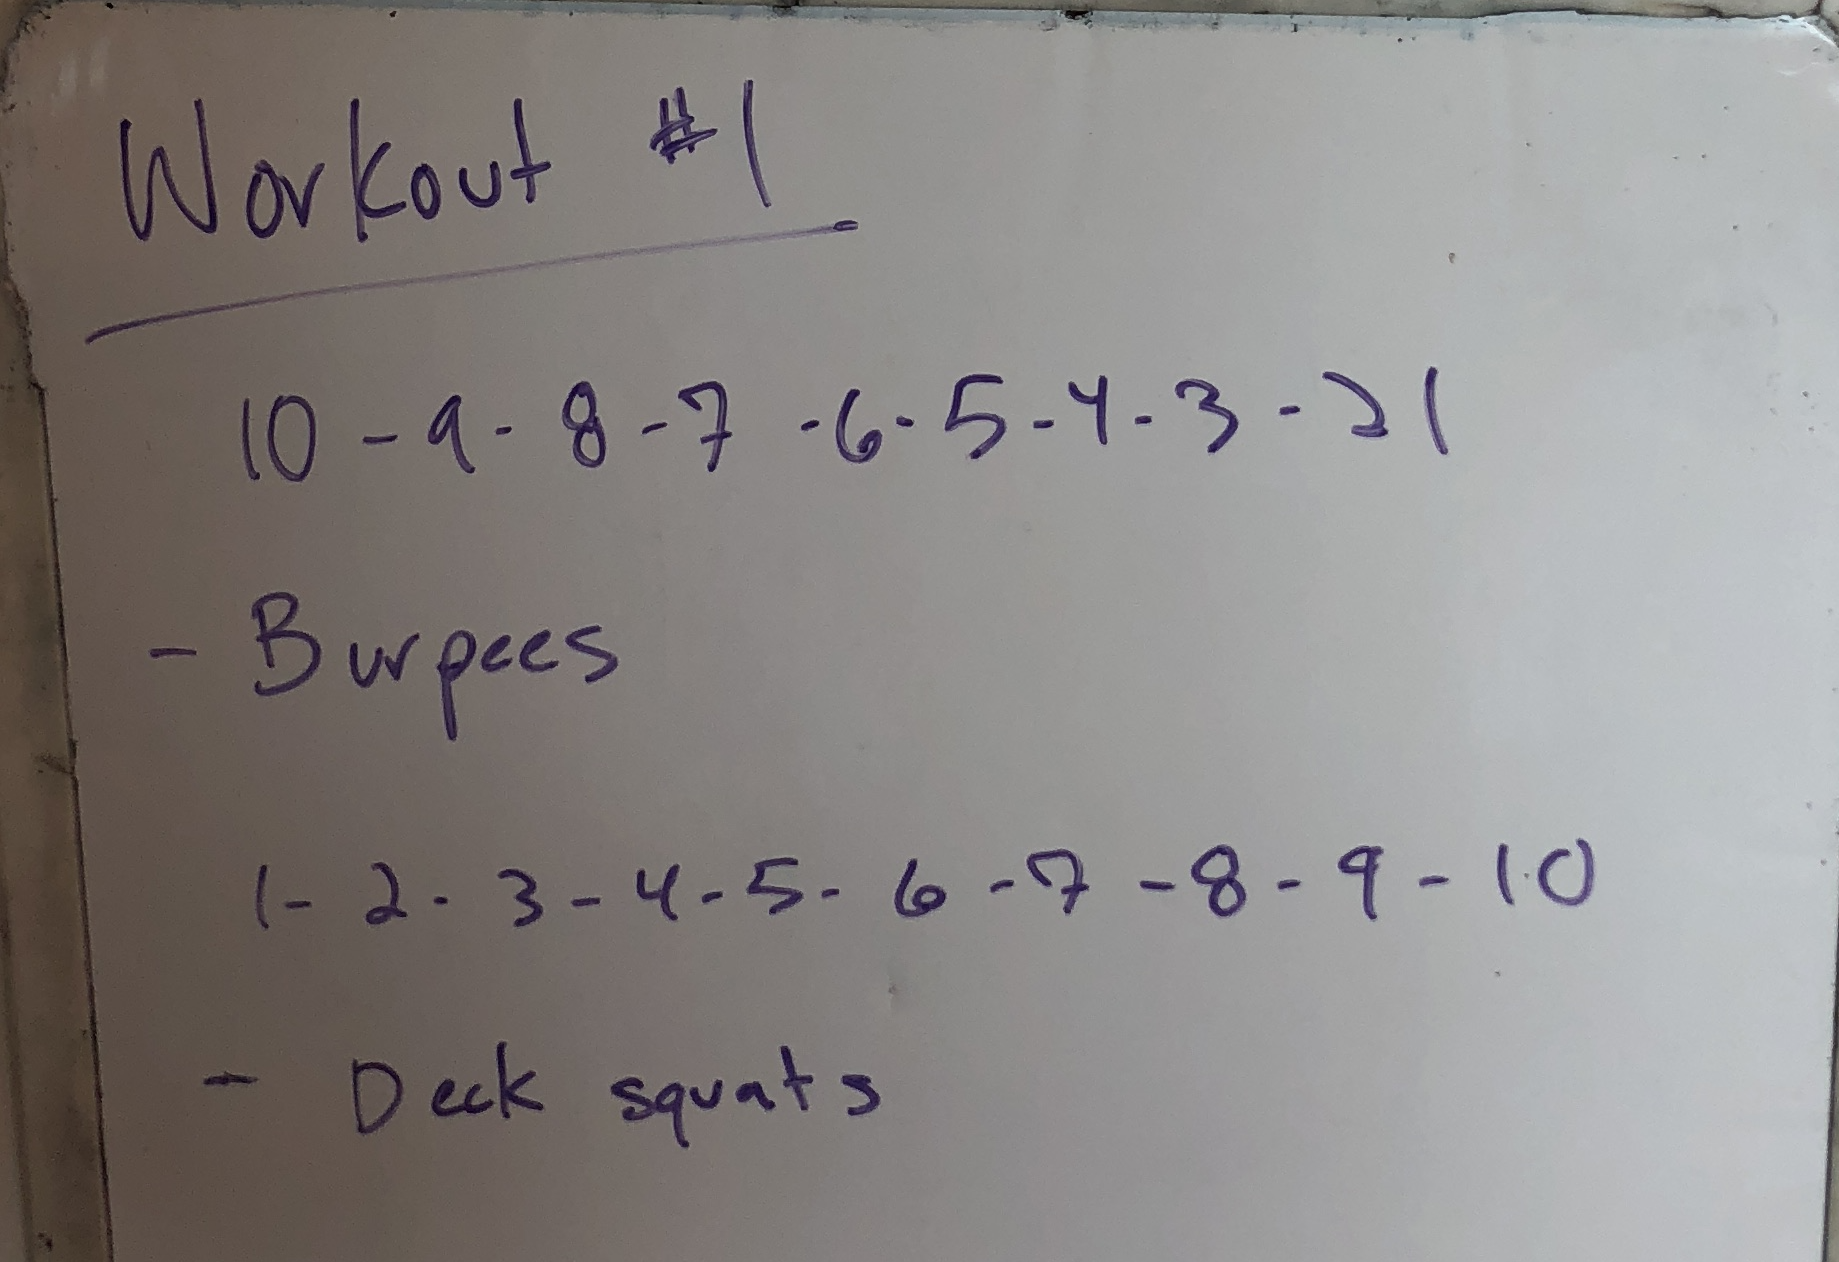 Workout #1
10 - 9 - 8 - 7 - 6 - 5 - 4 - 3 - 21
- Burpees
1 - 2 - 3 - 4 - 5 - 6 - 7 - 8 - 9 - 10
- Deck squats